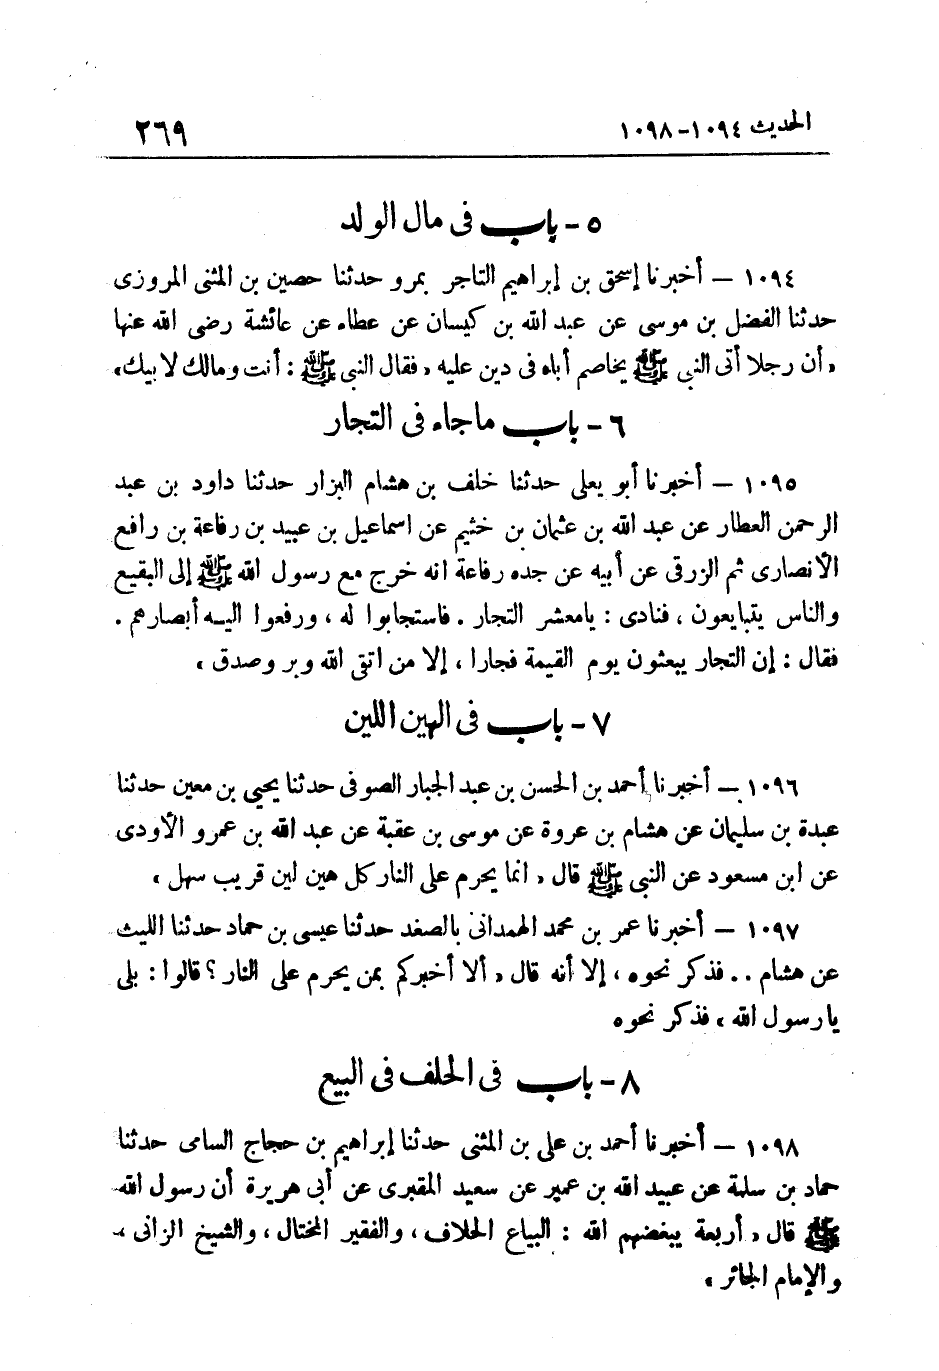 الحديث ١٠٩٤-١٠٩٨
٢٦٩
٥ - باب فى مال الولد
١٠٩٤ – أخبرنا إسحق بن إبراهيم التاجر بمرو حدثنا حصين بن المثنى المروزى
حدثنا الفضل بن موسى عن عبد الله بن كيسان عن عطاء عن عائشة رضى الله عنها
« أن رجلا أتى النبى ﷺ يخاصم أباه فى دين عليه « فقال النبى ﷺ : أنت ومالك لابيك »
٦ - باب ماجاء فى التجار
١٠٩٥ – أخبرنا أبو يعلى حدثنا خلف بن هشام البزار حدثنا داود بن عبد
الرحمن العطار عن عبد الله بن عثمان بن خثيم عن اسماعيل بن عبيد بن رفاعة بن رافع
الأنصارى ثم الزرقى عن أبيه عن جده رفاعة انه خرج مع رسول الله ﷺ إلى البقيع
والناس يتبايعون ، فنادى : يامعشر التجار . فاستجابوا له ، ورفعوا اليه أبصارهم .
فقال : إن التجار يبعثون يوم القيمة فجارا ، إلا من اتقى الله وبر وصدق »
٧ - باب فى الهين اللين
١٠٩٦ – أخبرنا أحمد بن الحسن بن عبد الجبار الصوفى حدثنا يحيى بن معين حدثنا
عبدة بن سليمان عن هشام بن عروة عن موسى بن عقبة عن عبد الله بن عمرو الأودى
عن ابن مسعود عن النبى ﷺ قال « انما يحرم على النار كل هين لين قريب سهل »
١٠٩٧ – أخبرنا عمر بن محمد الهمدانى بالصغد حدثنا عيسى بن حماد حدثنا الليث
عن هشام . . فذكر نحوه ، إلا أنه قال « ألا أخبركم بمن يحرم على النار ؟ قالوا : بلى
يارسول الله » فذكر نحوه
٨ - باب فى الحلف فى البيع
١٠٩٨ – أخبرنا أحمد بن على بن المثنى حدثنا إبراهيم بن حجاج السامى حدثنا
حماد بن سلمة عن عبيد الله بن عمير عن سعيد المقبرى عن أبى هريرة أن رسول الله
ﷺ قال « أربعة يبغضهم الله : البياع الحلاف ، والفقير المختال ، والشيخ الزانى ،
والإمام الجائر »